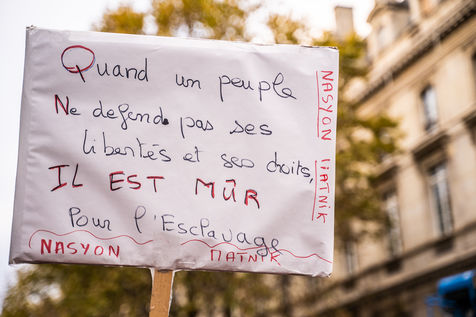 Quand un peuple
Ne défend pas ses
libertés et ses droits,
IL EST MÛR
Pour l'Esclavage
NASYON MATNIK
NASYON MATNIK